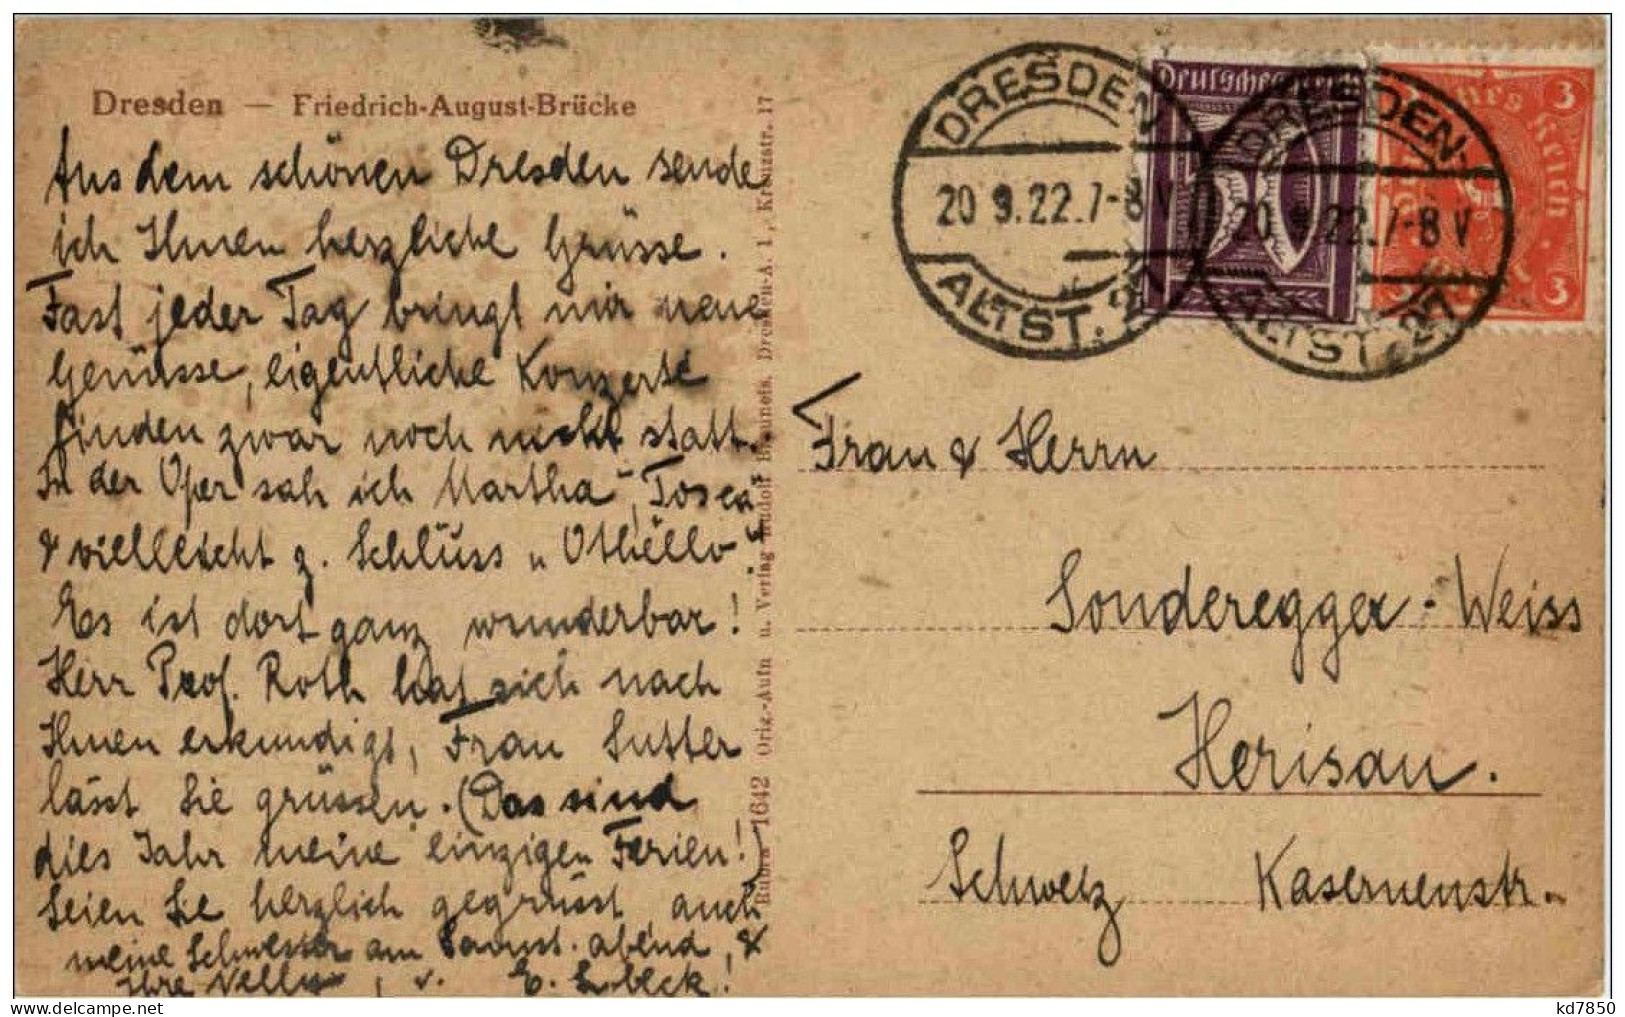 Dresden — Friedrich-August-Brücke
Aus dem schönen Dresden sende
ich Ihnen herzliche Grüsse.
Fast jeder Tag bringt mir neue
Genüsse, eigentliche Konzerte
finden zwar noch nicht statt.
In der Oper sah ich Martha", Tosca"
& vielleicht z. Schluss „Othello".
Es ist dort ganz wunderbar!
Herr Prof. Roth hat sich nach
Ihnen erkundigt, Frau Sutter
lässt Sie grüssen. (Das sind
dies Jahr meine einzigen Ferien!)
Seien Sie herzlich gegrüsst, auch
meine Schwester am Samst. abend, &
Ihre Nelly, v. E.
Rubra 1642 Orig.-Aufn u. Verlag Rudolf Dresden-A. 1, Kreuzstr. 17
DRESDEN
20 9.22.7-8 V
ALTST. 27
DRESDEN
20 9.22.7-8 V
ALTST. 27
Deutsches Reich
75
Deutsches Reich
3
3
Frau & Herrn
Sonderegger-Weiss
Herisau.
Schweiz Kasernenstr.
kd7850